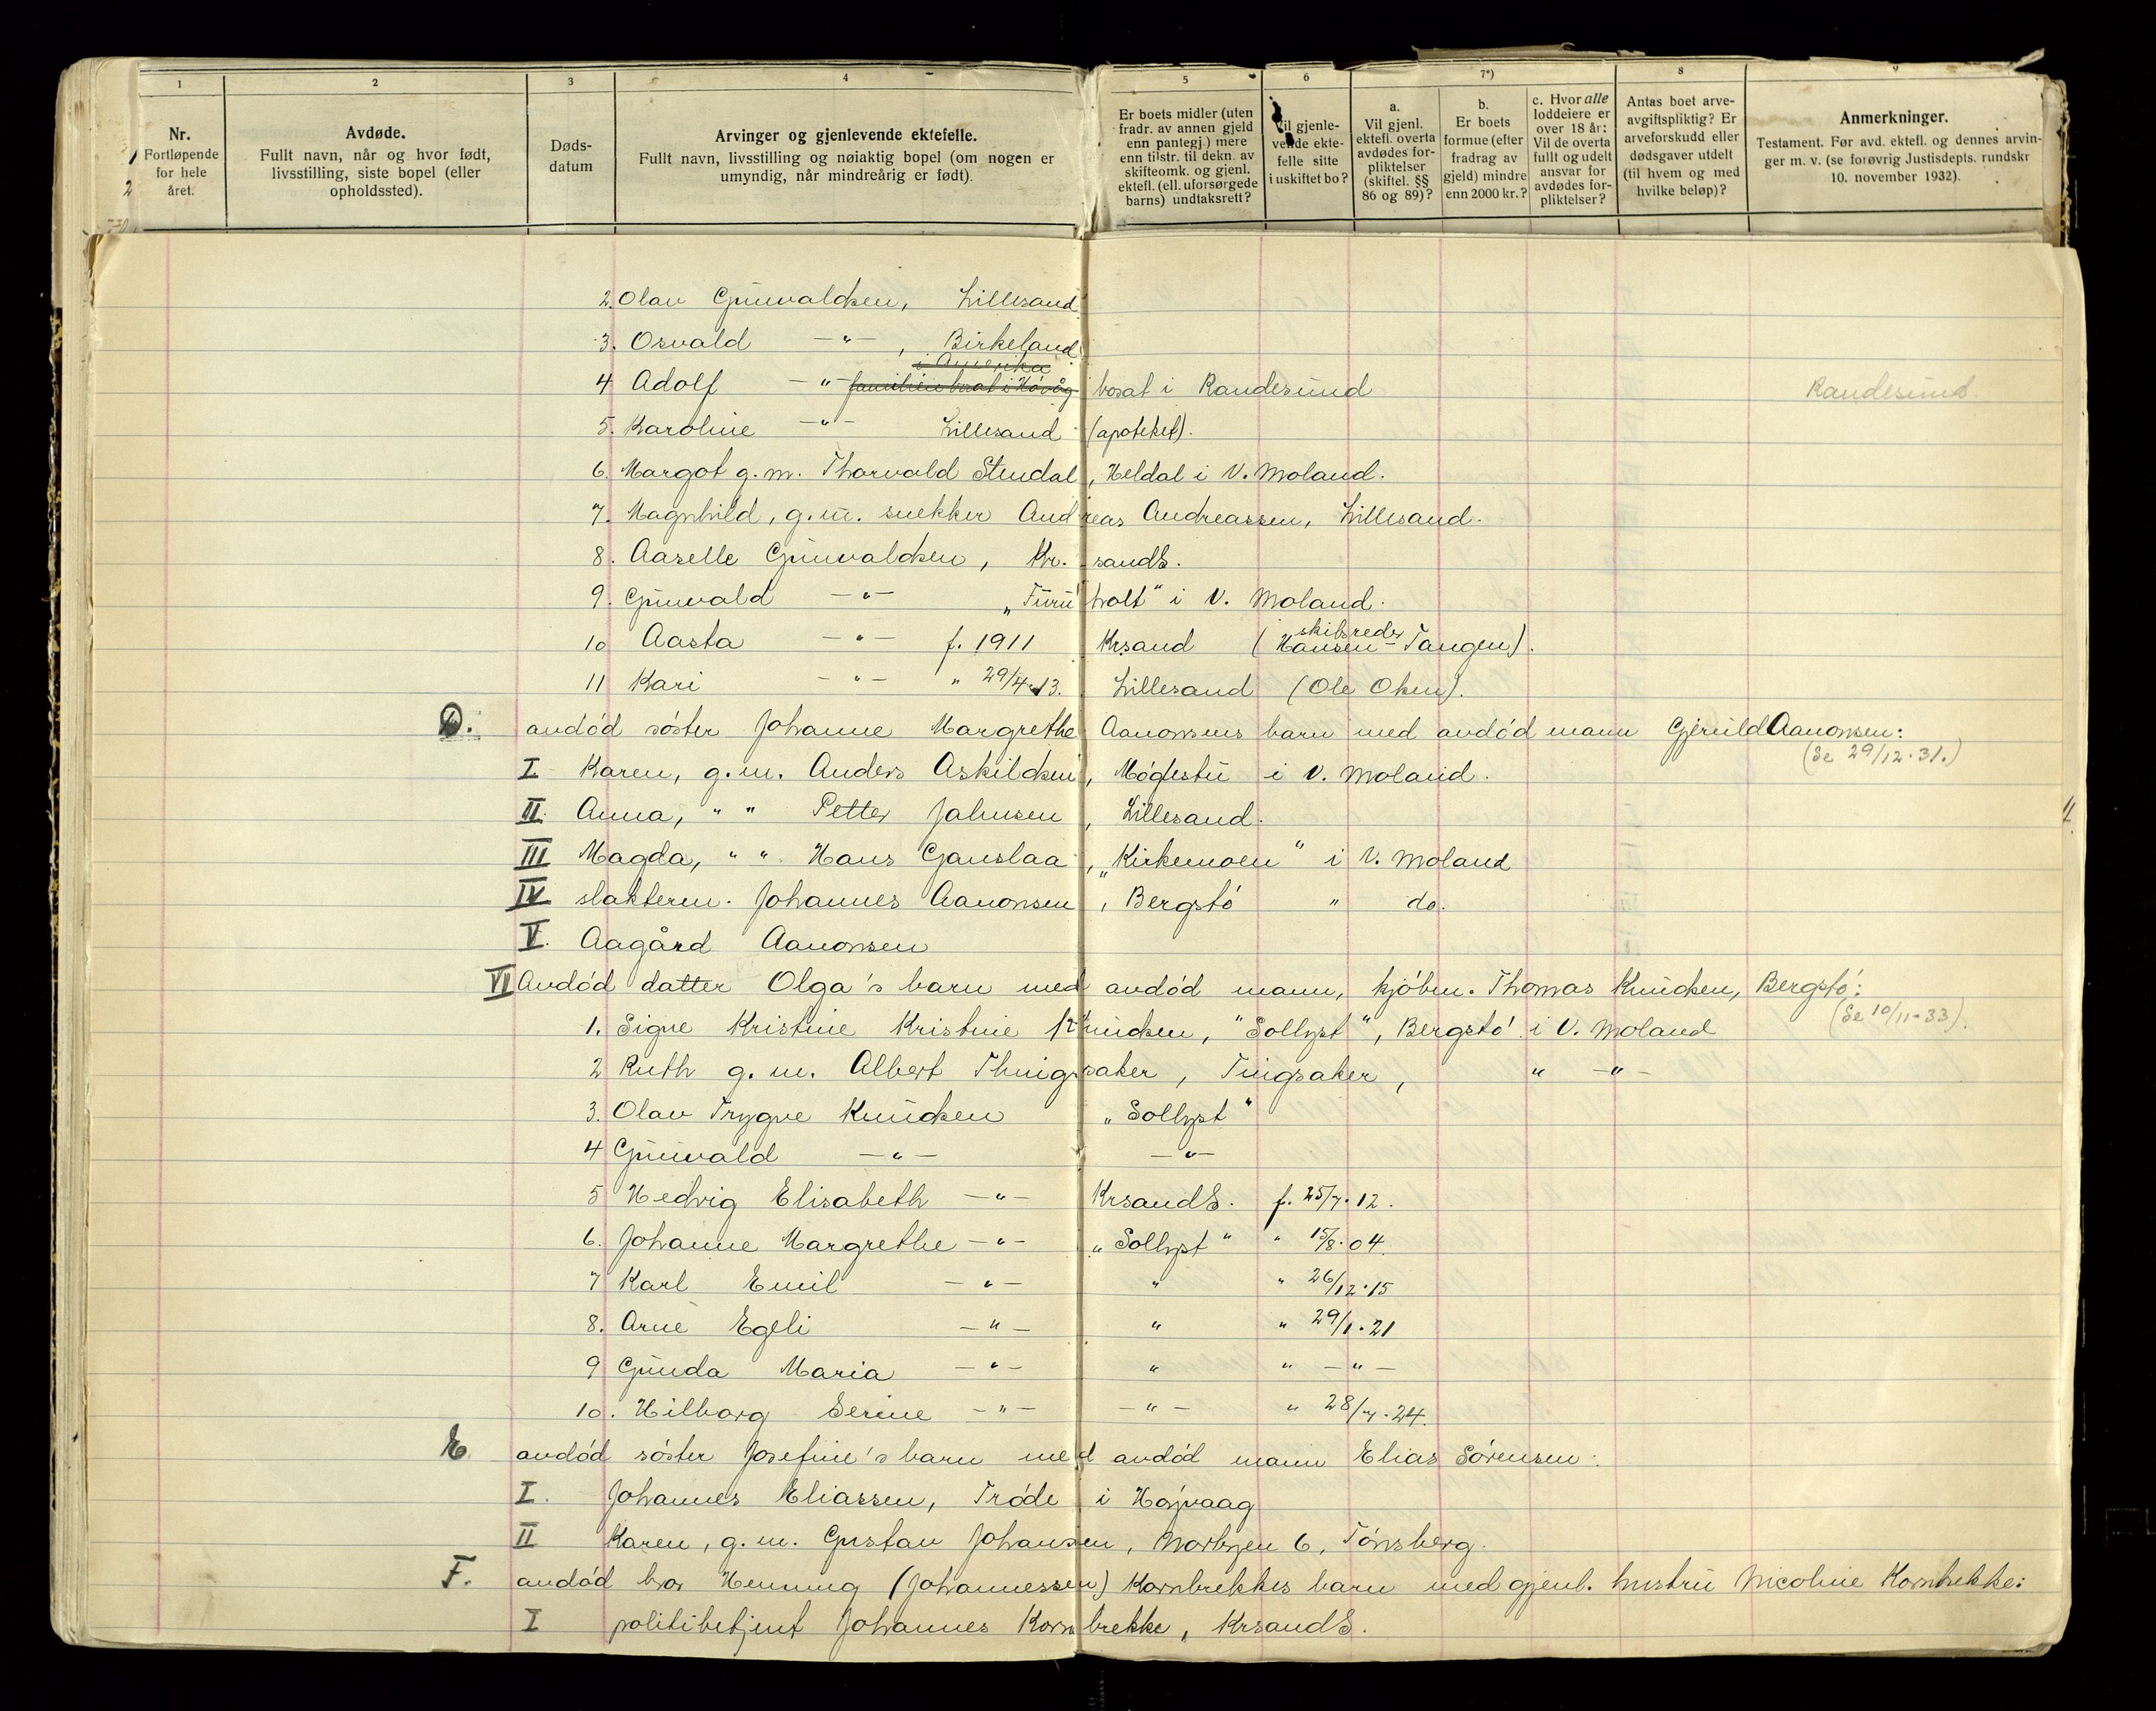 1 2 3 4 5 6 7*) 8 9
Nr. Fortløpende for hele året.
Avdøde. Fullt navn, når og hvor født, livsstilling, siste bopel (eller opholdssted).
Døds-datum
Arvinger og gjenlevende ektefelle. Fullt navn, livsstilling og nøiaktig bopel (om nogen er umyndig, når mindreårig er født).
Er boets midler (uten fradr. av annen gjeld enn pantegj.) mere enn tilstr. til dekn. av skifteomk. og gjenl. ektefl. (ell. uforsørgede barns) undtaksrett?
Vil gjenlevende ektefelle sitte i uskiftet bo?
a. Vil gjenl. ektefl. overta avdødes forpliktelser (skiftel. §§ 86 og 89)?
b. Er boets formue (efter fradrag av gjeld) mindre enn 2000 kr.?
c. Hvor alle loddeiere er over 18 år: Vil de overta fullt og udelt ansvar for avdødes forpliktelser?
Antas boet arveavgiftspliktig? Er arveforskudd eller dødsgaver utdelt (til hvem og med hvilke beløp)?
Anmerkninger. Testament. Før avd. ektefl. og dennes arvinger m. v. (se forøvrig Justisdepts. rundskr 10. november 1932).
2. Olav Gunvaldsen, Lillesand
3. Osvald —"— , Birkeland
i Amerika
4 Adolf —"— familien bosat i Høvåg bosat i Randesund Randesund.
5. Karoline —"— Lillesand (apoteket).
6. Margot g.m. Thorvald Stendal, Heldal i V. Moland.
7. Magnhild, g.m. snekker Andreas Andreassen, Lillesand.
8. Aaselle Gunvaldsen, Kr.sandS.
9. Gunvald —"— „Furuholt" i V. Moland.
skibsreder
10 Aasta —"— f. 1911 Krsand (Hansen-Tangen).
11 Kari —"— " 29/4.13. Lillesand (Ole Olsen).
D. avdød søster Johanne Margrethe Aanonsens barn med avdød mann Gjeruld Aanonsen:
(Se 29/12.31.)
I Karen, g.m. Anders Askildsen, Møglestu i V. Moland.
II. Anna, " " Petter Jahnsen, Lillesand.
III Magda, " " Hans Gauslaa, „Kirkemoen" i V. Moland
IV slakterm. Johannes Aanonsen, Bergstø " do.
V. Aagård Aanonsen
VI Avdød datter Olga's barn med avdød mann, kjøbm. Thomas Knudsen, Bergstø:
(Se 10/11-33).
1. Signe Kristine Kristine Knudsen, "Sollyst", Bergstø i V. Moland
2 Ruth g.m. Albert Thingsaker, Tingsaker, " —"—
3. Olav Trygve Knudsen „Sollyst"
4 Gunvald —"— —"—
5 Hedvig Elisabeth —"— KrsandS. f. 25/7.12.
6. Johanne Margrethe —"— „Sollyst" " 15/8.04.
7 Karl Emil —"— " " 26/12.15
8. Arne Egeli —"— " " 29/1.21
9 Gunda Maria —"— " " —"—
10. Hilborg Serine —"— —"— " 28/7.24.
E. avdød søster Josefine's barn med avdød mann Elias Sørensen:
I. Johannes Eliassen, Trøde i Højvaag
II Karen, g.m. Gustav Johansen, Norbyen 6, Tønsberg.
F. avdød bror Henning (Johannessen) Kornbrekkes barn med gjenl. hustru Nicoline Kornbrekke:
I politibetjent Johannes Kornbrekke, KrsandS.